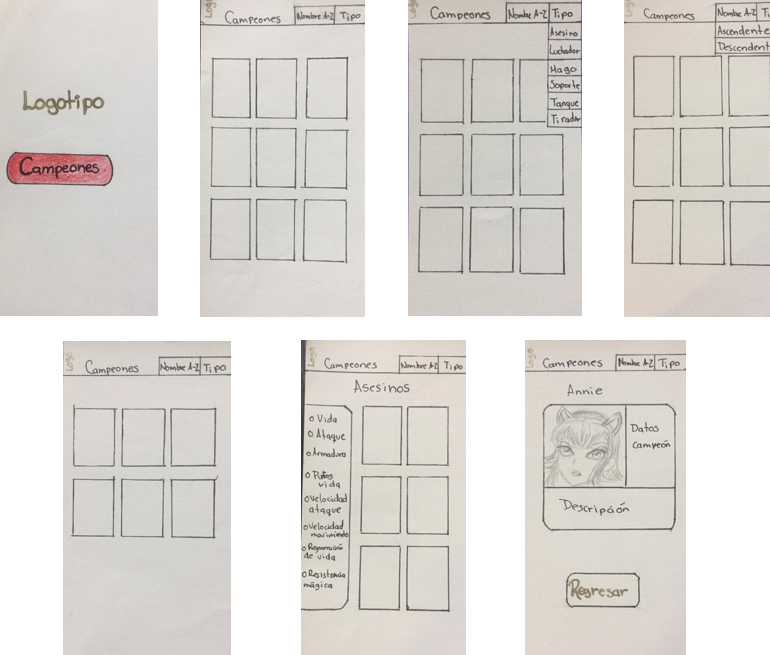 Logotipo
Campeones
Logo
Campeones
Nombre A-Z
Tipo
Logo
Campeones
Nombre A-Z
Tipo
Asesino
Luchador
Mago
Soporte
Tanque
Tirador
Campeones
Nombre A-Z
Ti
Ascendente
Descendent
Logo
Campeones
Nombre A-Z
Tipo
Logo
Campeones
Nombre A-Z
Tipo
Asesinos
o Vida
o Ataque
o Armadura
o Puntos
vida
o Velocidad
ataque
o Velocidad
movimiento
o Regeneración
de vida
o Resistencia
mágica
Logo
Campeones
Nombre A-Z
Tipo
Annie
Datos
Campeón
Descripción
Regresar